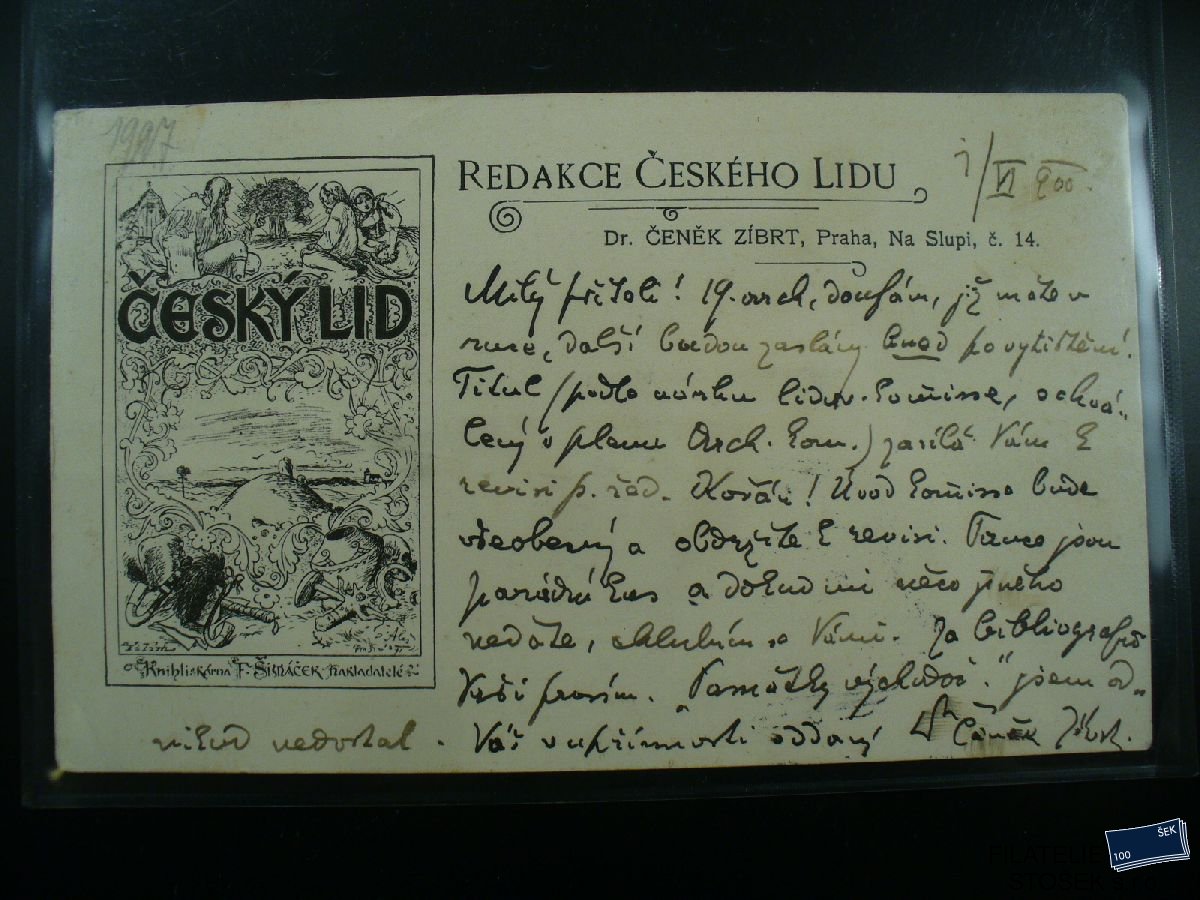 1997
ČESKÝ LID
Knihtiskárna F. Šimáček nakladatelé
REDAKCE ČESKÉHO LIDU
Dr. ČENĚK ZÍBRT, Praha, Na Slupi, č. 14.
VI 900.
Milý příteli! 19. arch, doufám, již máte v
ruce, další budou zaslány hned po vytištění.
Titul (podle návrhu lidov. komisse, schvá-
lený v plenu Arch. kom.) zasílá Vám k
revisi p. řed. Kořán! Úvod komisse bude
všeobecný a obdržíte k revisi. Tance jsou
parádní kus a dokud mi něco jiného
nedáte, chlubím se Vámi. Za bibliografii
Vaší prosím. „Památky východoč." jsem od-
nikud nedostal.
Váš v upřímnosti oddaný Dr Čeněk Zíbrt.
ŠEK
100
FILATELIE
STOŠEK